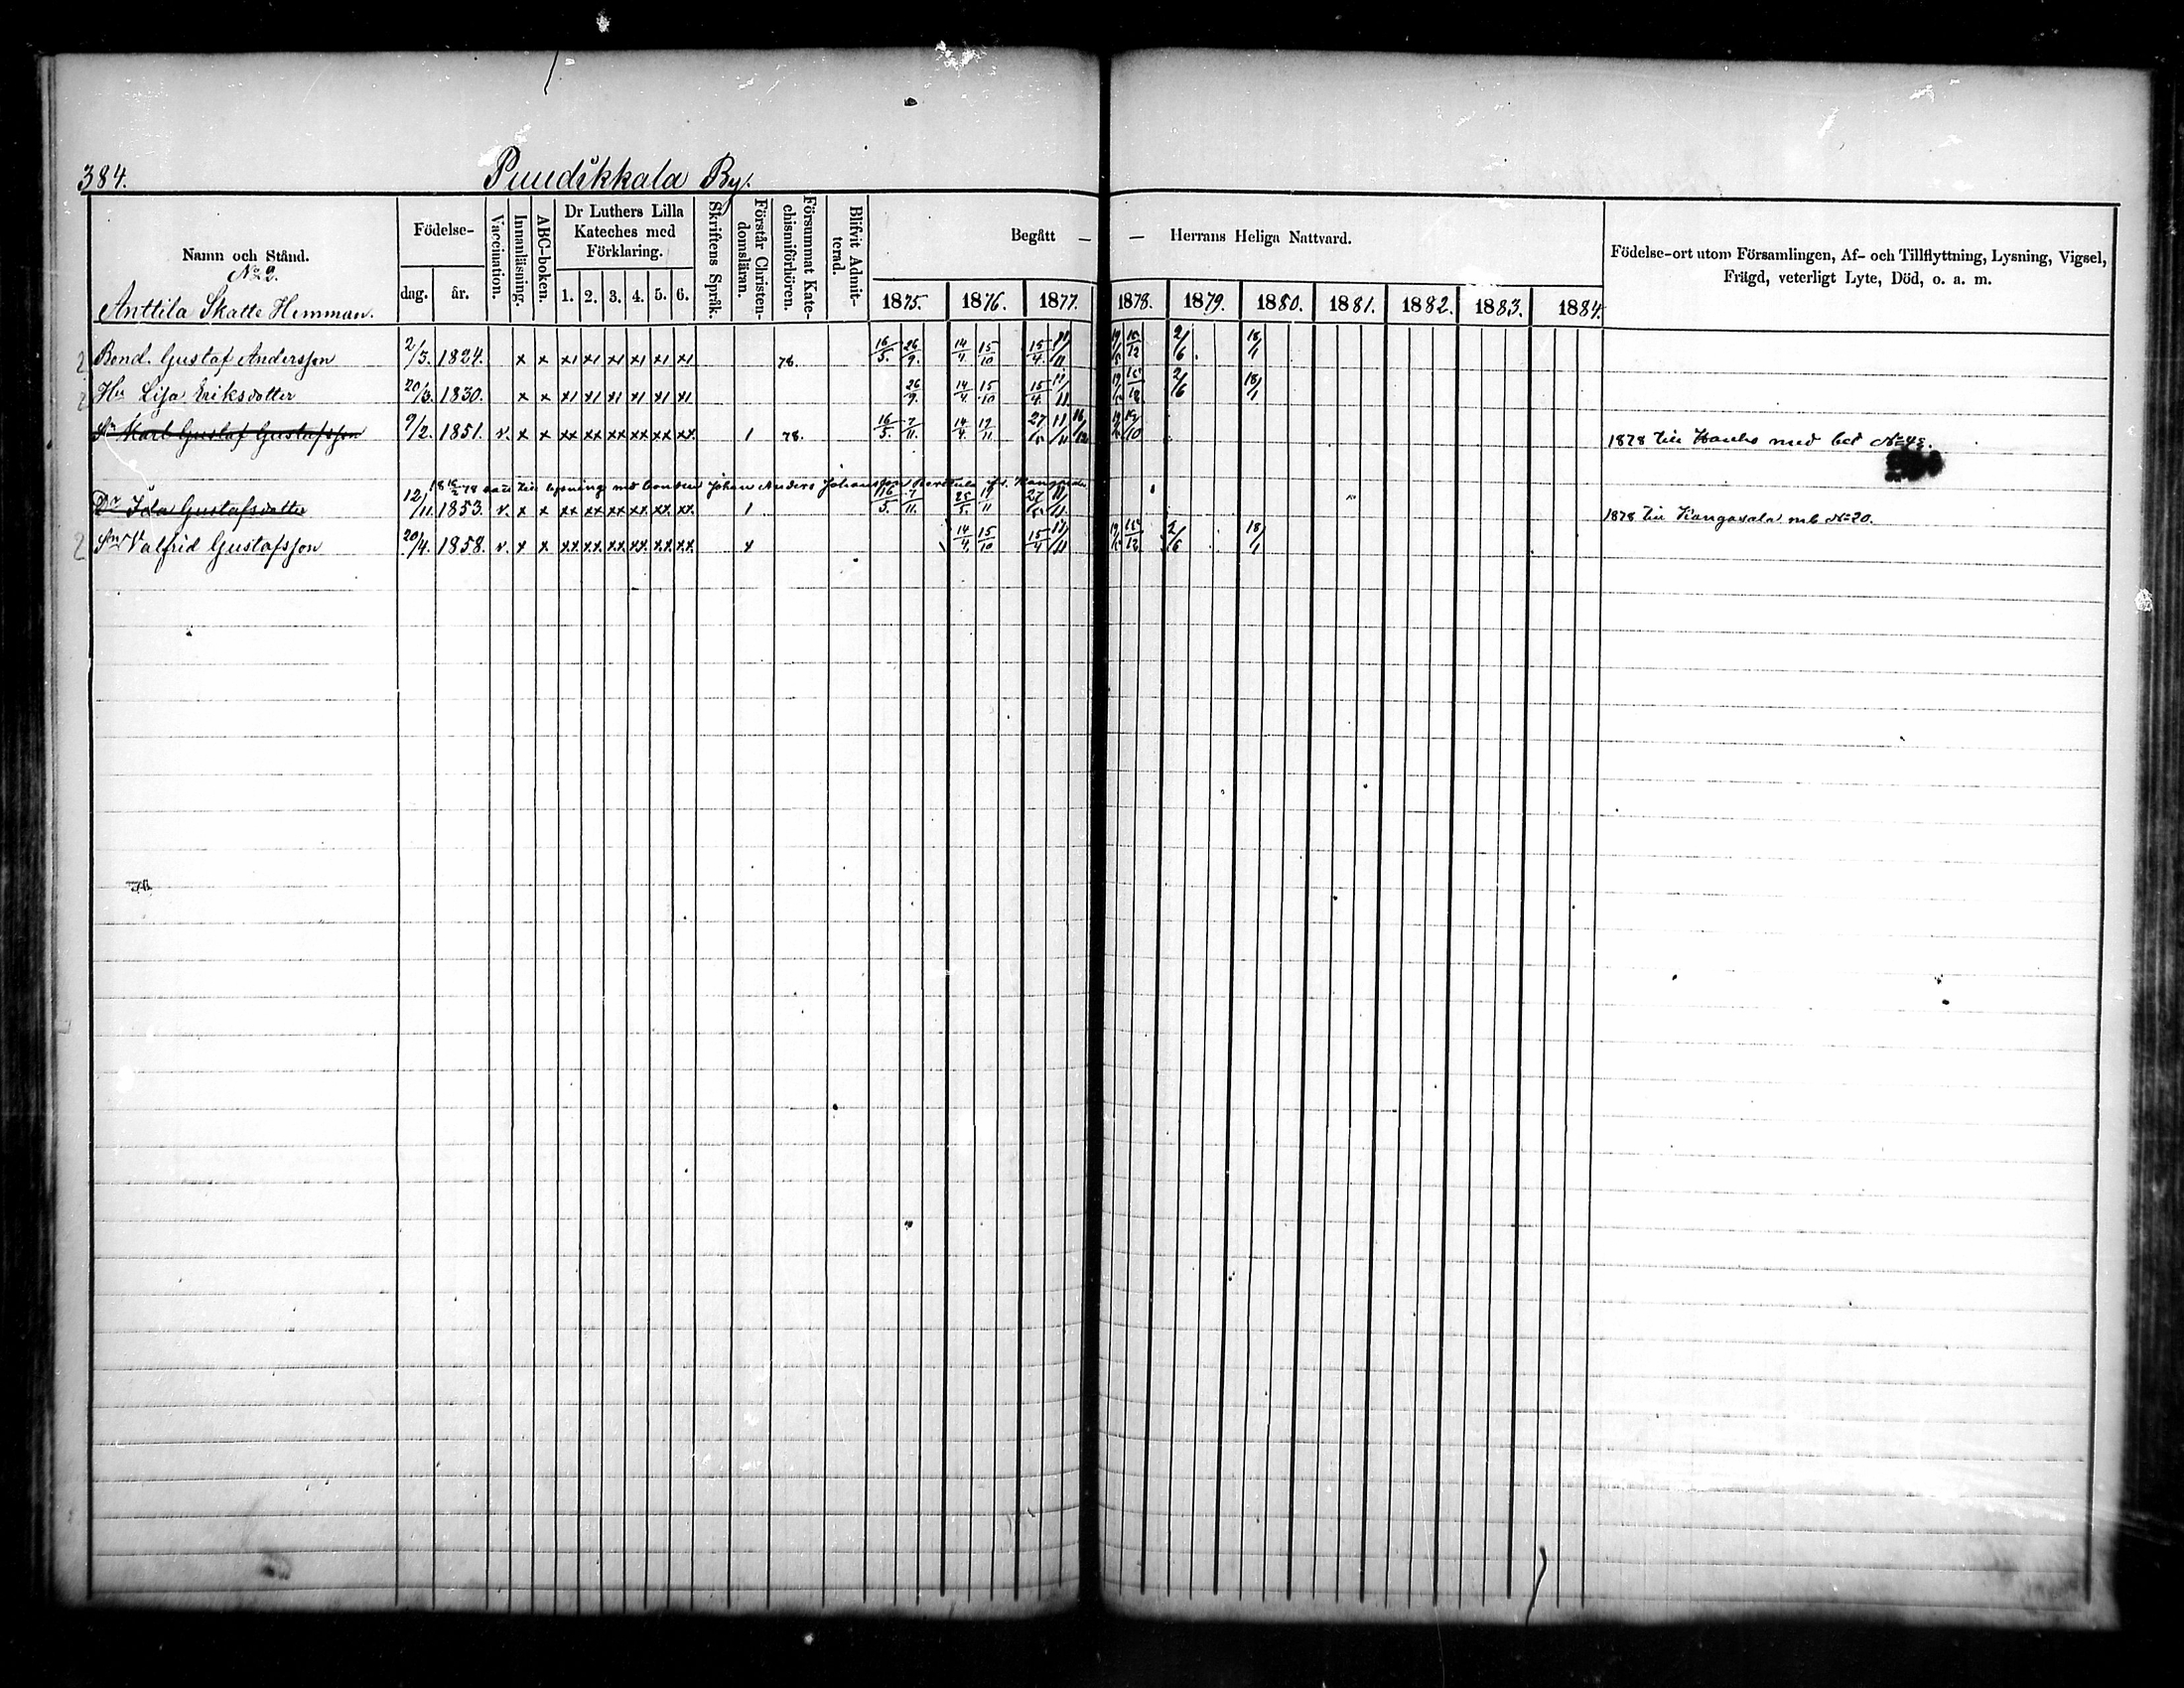 384.
Puudikkala By.
Namn och Stånd.
No 2.
Anttila Skatte Hemman.
Födelse-
dag. år.
Vaccination.
Innanläsning.
ABC-boken.
Dr Luthers Lilla
Kateches med
Förklaring.
1. 2. 3. 4. 5. 6.
Skriftens Språk.
Förstår Christen-
domsläran.
Försummat Kate-
chismiförhören.
Blifvit Admit-
terad.
Begått — — Herrans Heliga Nattvard.
1875. 1876. 1877. 1878. 1879. 1880. 1881. 1882. 1883. 1884.
Födelse-ort utom Församlingen, Af- och Tillflyttning, Lysning, Vigsel,
Frägd, veterligt Lyte, Död, o. a. m.
Bond. Gustaf Andersson 2/3. 1824. x x x1 x1 x1 x1 x1 x1 78. 16/5. 26/9. 14/4. 15/10 15/4. 11/11 2/6 18/1
Hu Lisa Eriksdotter 20/3. 1830. x x x1 x1 x1 x1 x1 x1 26/9. 14/4. 15/10 15/4. 11/11 2/6 18/1
Sn Karl Gustaf Gustafsson 9/2. 1851. v. x x xx xx xx xx xx xx. 1 78. 16/5. 7/11. 14/4. 19/11 1878 till Hauho med bet No 48.
till lysning med bonden Johan Anders Johansson
Dr Ida Gustafsdotter 12/11. 1853. v. x x xx xx xx xx xx xx. 1 16/5. 7/11. 25/5. 19/11 1878 till Kangasala mb No 20.
Sn Valfrid Gustafsson 20/4. 1858. v. x x xx xx xx xx xx xx. x 14/4. 15/10 15/4 11/11 2/6 18/1